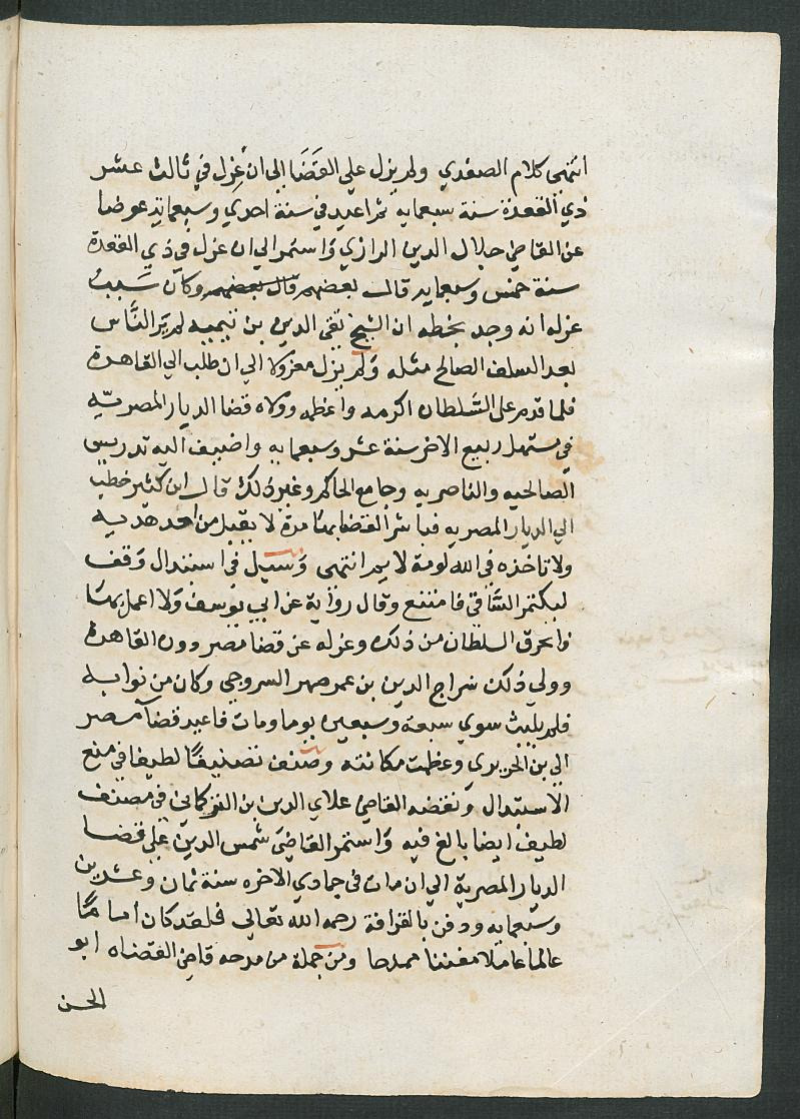 انتهى كلام الصفدي ولم يزل علي القَضَا إلي ان عُزِل في ثالث عشر
ذي القعدة سنة سبعمايه ثم اعيد في سنة احدي وسبعماية عوضا
عن القاضي جلال الدين الرازي واستمر الي ان عزل في ذي القعدة
سنة خمس وسبعمايه قالـ بعضهم قال بعضهم وكان سَبَبُ
عزله انه وجد بخطه ان الشيخ تقى الدين بن تيميه لم يَر النَّاس
بعد السلف الصالح مثله ولم يزل معزولا الي ان طلب الي القاهرة
فلما قدم على السَّلطان اكرمه واعظمه وولاه قضا الديار المصريّه
في مستهل ربيع الاخر سنة عشر وسبعمايه واضيف اليه تدريس
الصالحيه والناصريه وجامع الحاكم وغير ذلك قال ابن كثير خطب
الي الديار المصريه فباشر القضا بمصر مدة لا يقبل من احد هديه
ولا تاخذه في الله لومة لايم انتهى وسيل في استبدال وقف
لبكتمر السَّاقي فامتنع وقال رواية عن ابي يوسف ولا اعمل بها
فانحرق السلطان من ذلك وعزله عن قضا مصر دون القاهرة
وولي ذلك سراج الدين بن عمر صهر السروجي وكان من نوابه
فلم يلبث سوي سبعة وسبعين يوما ومات فاعيد قضا مصر
الي بن الحريري وعظمت مكانته وصنف تصنيفًا لطيفا في منع
الاستبدال ونقضه القاضي علاي الدين بن التركماني في مصنف
لطيف ايضا بالغ فيه واستمر القاضي شمس الدين علي قضا
الديار المصرية الي ان مات في جمادي الاخره سنة ثمان وعشرين
وسبعمايه ودفن بالقرافة رحمه الله تعالي فلقد كان أمامًا
عالما عاملا مفننا ممدحا ومن جملة من مدحه قاضي القضاه ابو
الحسن